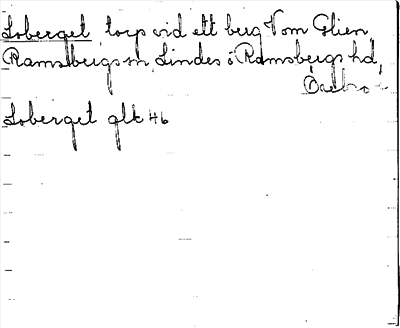 Loberget torp vid ett berg V om Glien,
Ramsbergs sn, Lindes o Ramsbergs hd,
Örebro
Loberget glk 46